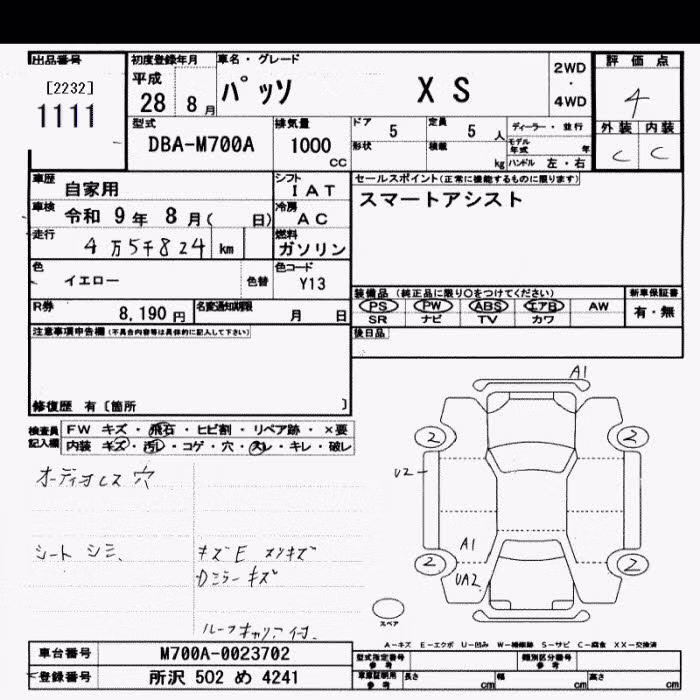 出品番号
[2232]
1111
初度登録年月
平成
28 8 月
車名・グレード
パッソ X S
2WD
・
4WD
評価点
4
外装 内装
C C
型式
DBA-M700A
排気量
1000
CC
ドア 5
定員 5 人
形状
積載 kg
ディーラー・並行
モデル年式 年
ハンドル 左・右
車歴 自家用
シフト
I A T
車検 令和 9 年 8 月( 日)
冷房
A C
走行 4 万 5 千 824 km
燃料
ガソリン
色 イエロー 色替
色コード
Y13
R券 8,190 円
名変通知期限 月 日
セールスポイント(正常に機能するものに限ります)
スマートアシスト
装備品 (純正品に限り○をつけてください)
PS PW ABS エアB AW
SR ナビ TV カワ
新車保証書
有・無
後日品
注意事項申告欄(不具合内容等は具体的に記入して下さい)
修復歴 有〔箇所 〕
検査員
記入欄
FW キズ・飛石・ヒビ割・リペア跡・×要
内装 キズ・汚レ・コゲ・穴・スレ・キレ・破レ
オーディオレス 穴
シート シミ
キズE メソキズ
Dミラーキズ
ルーフキャリア付
A1
2
2
U2
A1
UA2
2
2
スペア
A－キズ E－エクボ U－凹み W－補修跡 S－サビ C－腐食 XX－交換済
車台番号 M700A-0023702
登録番号 所沢 502 め 4241
型式指定番号
参考
類別区分番号
参考
車庫証明用
参考
長さ cm
幅 cm
高さ cm